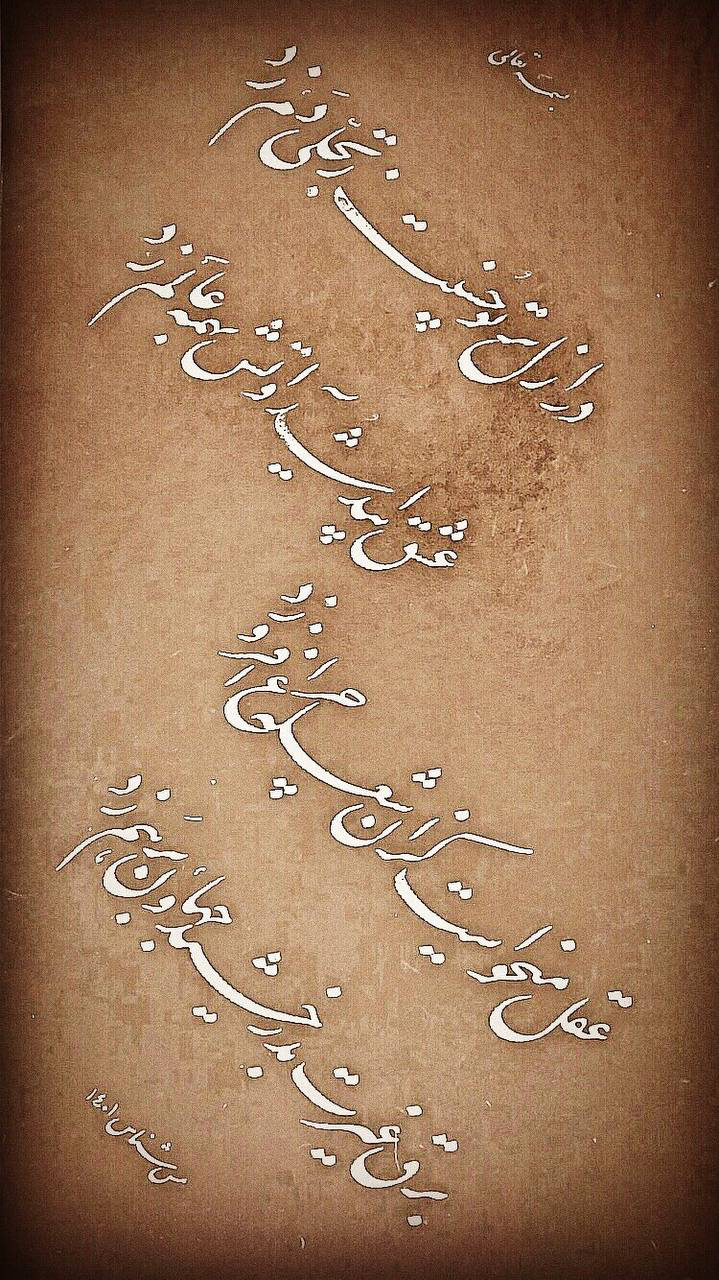 بسمه تعالی
در ازل پرتو حسنت ز تجلی دم زد
عشق پیدا شد و آتش به همه عالم زد
عقل میخواست کز آن شعله چراغ افروزد
برق غیرت بدرخشید و جهان بر هم زد
۱۴۰۱